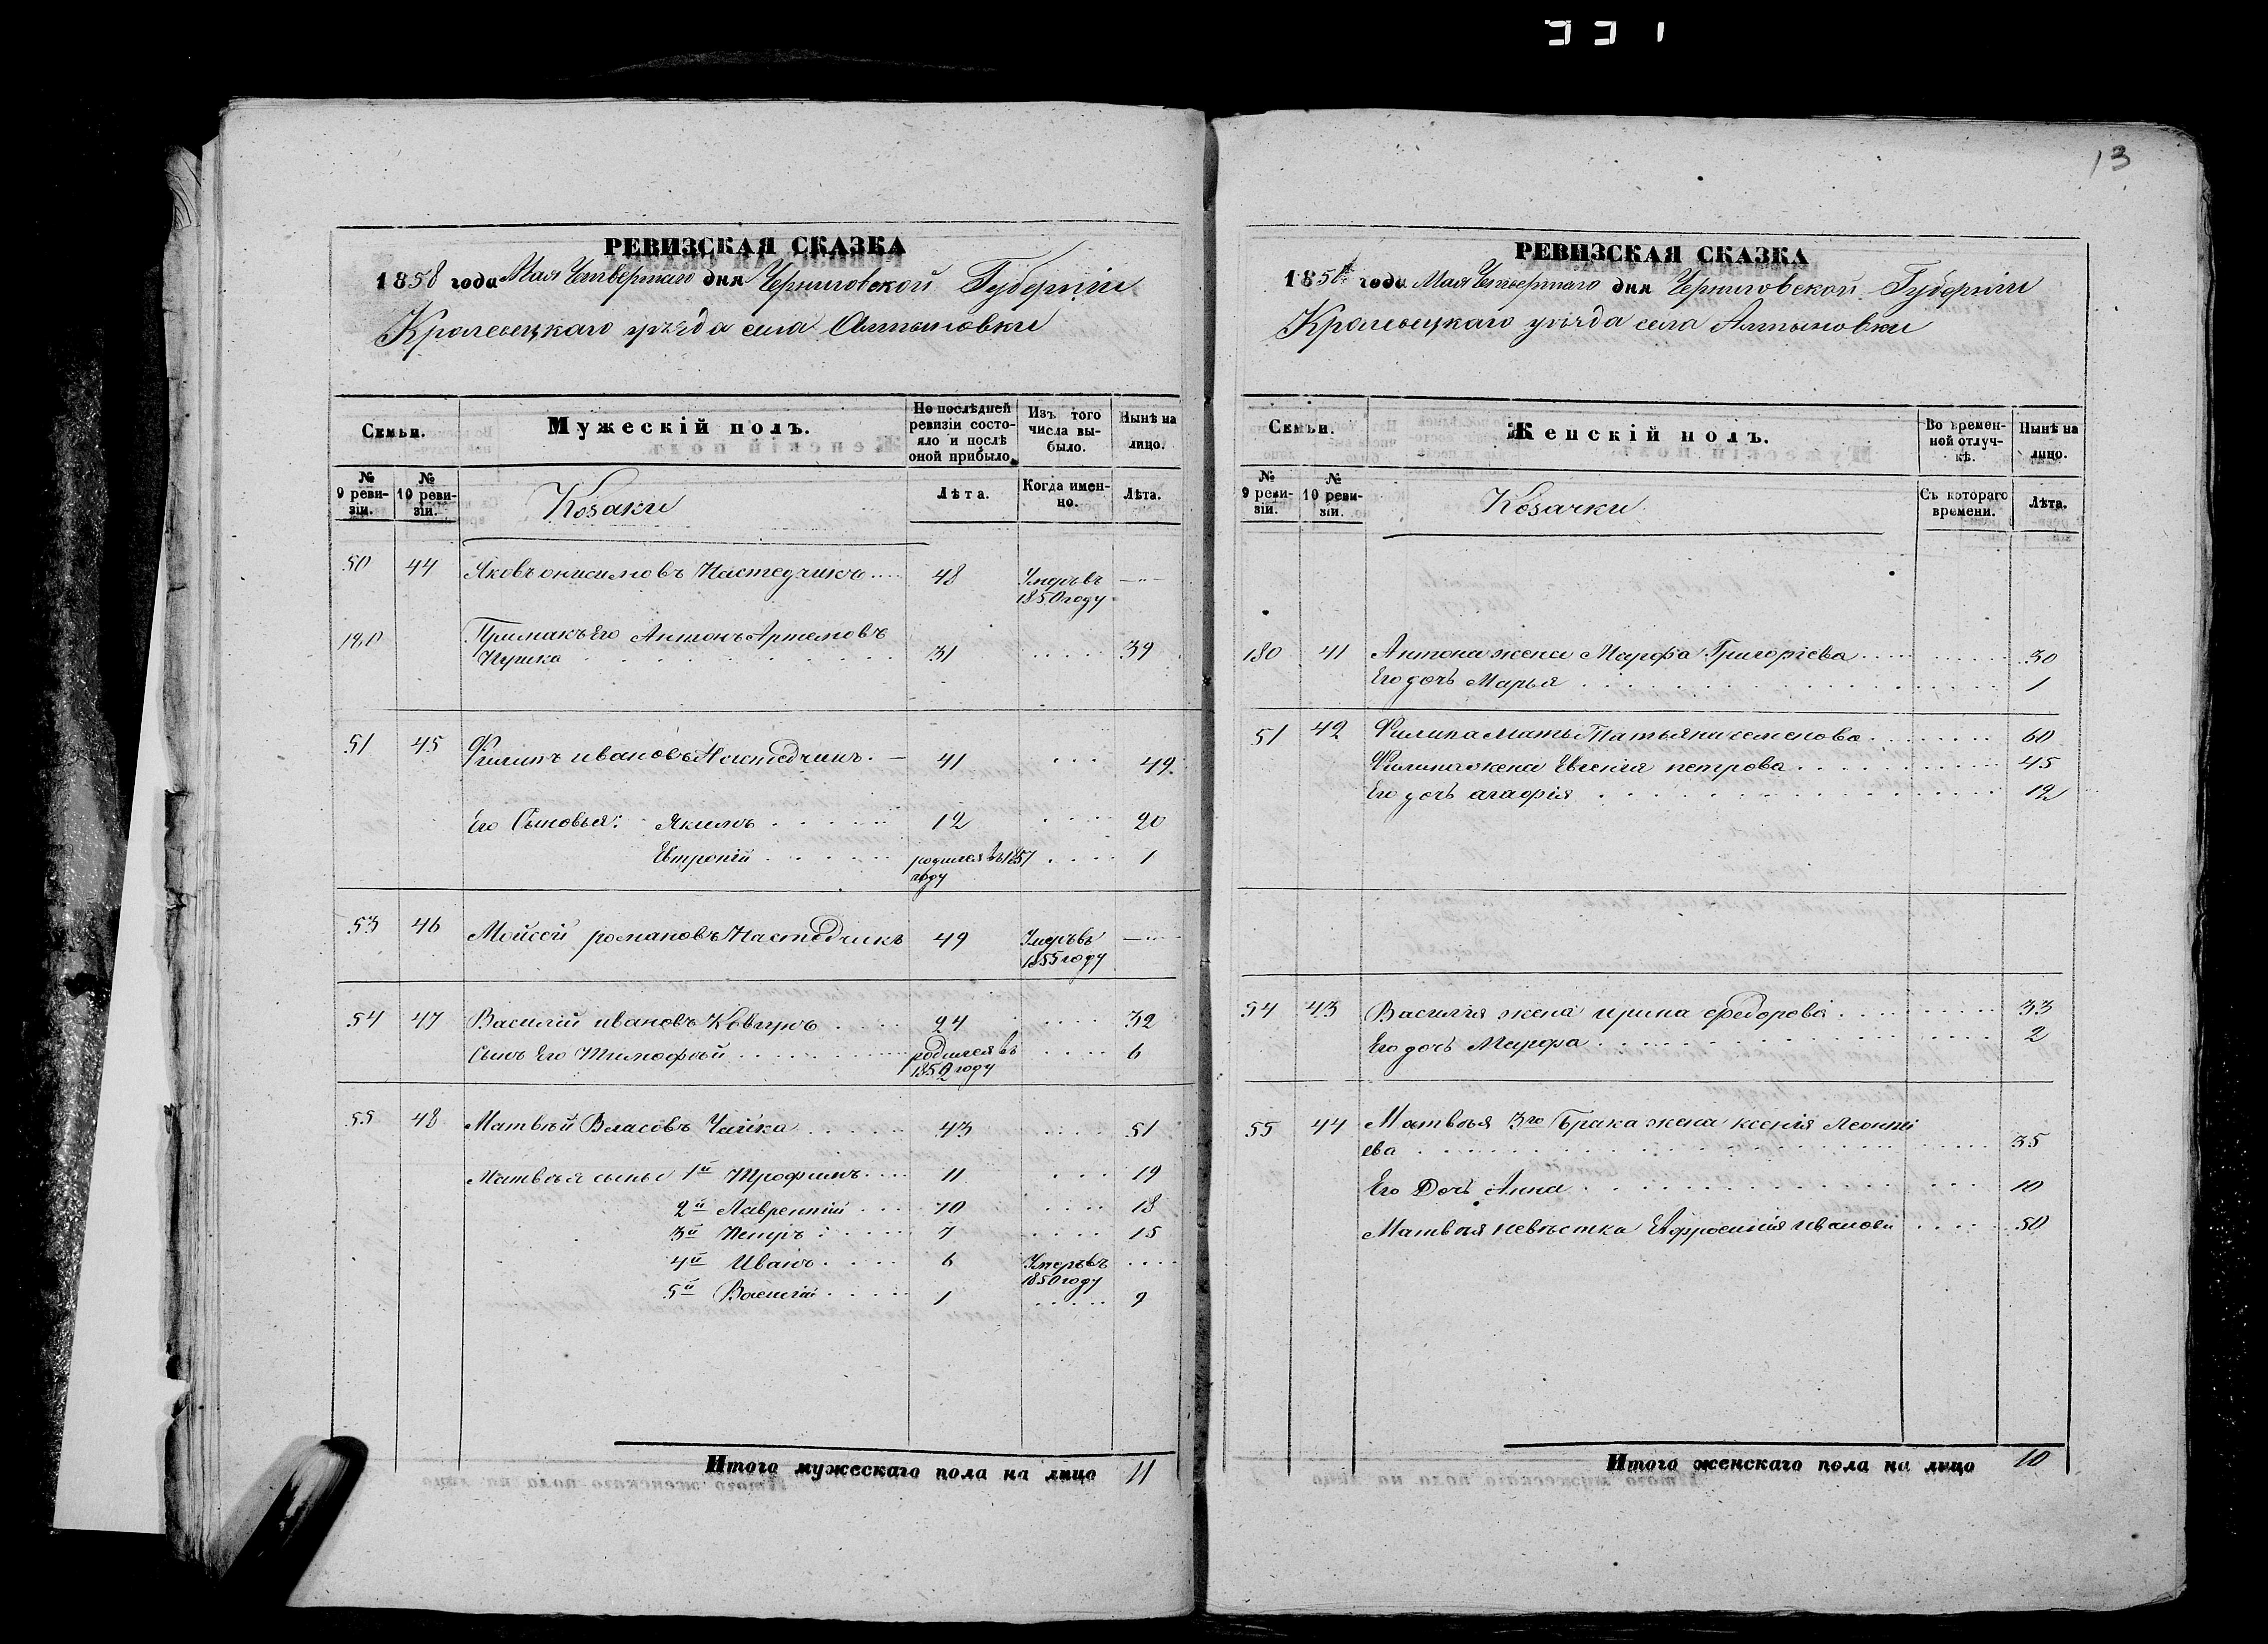 331
РЕВИЗСКАЯ СКАЗКА
1858 года Мая Четвертаго дня Черниговской Губерніи
Кролевецкаго уѣзда села Алтыновки
Семьи.
Мужескій полъ.
По послѣдней ревизіи состояло и послѣ оной прибыло.
Изъ того числа выбыло.
Нынѣ на лицо.
№ 9 ревизіи.
№ 10 ревизіи.
Козаки
Лѣта.
Когда именно.
Лѣта.
50 44 Яковъ онисимовъ 48 Умеръ въ 1850 году
180 Примакъ Его Антонъ Артемовъ
31 39
51 45 Филипъ ивановъ 41 49.
Его Сыновья: Якимъ 12 20
Евтропій родился въ 1857 году 1
53 46 Мойсей романовъ 49 Умеръ въ 1855 году
54 47 Василій ивановъ 24 32
Сынъ Его Тимофѣй родился въ 1852 году 6
55 48 Матвѣй Власовъ Чайка 43 51
Матвѣя сыны 1й Трофимъ 11 19
2й Лаврентій 10 18
3й Петръ 7 15
4й Иванъ 6 Умеръ въ 1850 году
5й Василій 1 9
Итого мужескаго пола на лицо 11
13
РЕВИЗСКАЯ СКАЗКА
1858 года Мая Четвертаго дня Черниговской Губерніи
Кролевецкаго уѣзда села Алтыновки
Семьи.
Женскій полъ.
Во временной отлучкѣ.
Нынѣ на лицо.
№ 9 ревизіи.
№ 10 ревизіи.
Козачки
Съ котораго времени.
Лѣта.
180 41 Антона жена Марфа Григоріева 30
Его дочь Марья 1
51 42 Филипа мать Татьяна семенова 60
Филипа жена Евгенія петрова 45
Его дочь агафія 12
54 43 Василія жена ирина федорова 33
Его дочь Марфа 2
55 44 Матвѣя 3го Брака жена ксенія Леонті
ева 35
Его Дочь Анна 10
Матвѣя невѣстка Ефросинія иванова 50
Итого женскаго пола на лицо 10